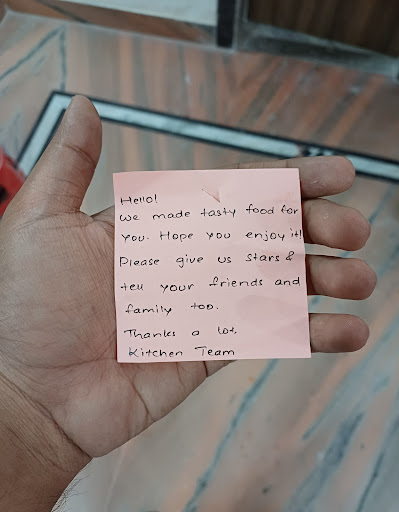 Hello!
We made tasty food for
you. Hope you enjoy it!
Please give us stars &
tell your friends and
family too.
Thanks a lot,
Kitchen Team